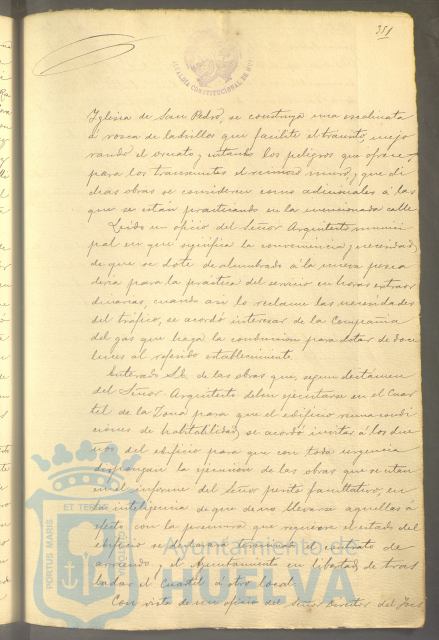 351
ALCALDIA CONSTITUCIONAL DE
Iglesia de San Pedro, se construya una escalinata
ó rosca de ladrillos que facilite el tránsito, mejo
rando el ornato y evitando los peligros que ofrece,
para los transeuntes el mismo muro, y que di
chas obras se consideren como adicionales á las
que se están practicando en la mencionada calle.
Leido un oficio del Señor Arquitecto munici
pal en que significa la conveniencia y necesidad
de que se dote de alumbrado á la nueva pesca
dería para la práctica del servicio en horas extraor
dinarias, cuando así lo reclame las necesidades
del tráfico, se acordó interesar de la Compañia
del gas que haga la conducción para dotar de doce
luces al referido establecimiento.
Enterado S.E. de las obras que, segun dictámen
del Señor Arquitecto deben ejecutarse en el Cuar
tel de la Zona para que el edificio reuna condi
ciones de habitabilidad, se acordó invitar á los due
ños del edificio para que con toda urgencia
dispongan la ejecución de las obras que se citan
en el informe del Señor perito facultativo, en
la inteligencia de que de no llevarse aquellas á
efecto con la premura que requiere el estado del
edificio se declarará terminado el contrato de
arriendo y el Ayuntamiento en libertad de tras
ladar el Cuartel á otro local.
Con vista de un oficio del Señor Director del
PORTUS MARIS
ET TERRAE
Ayuntamiento de
HUELVA